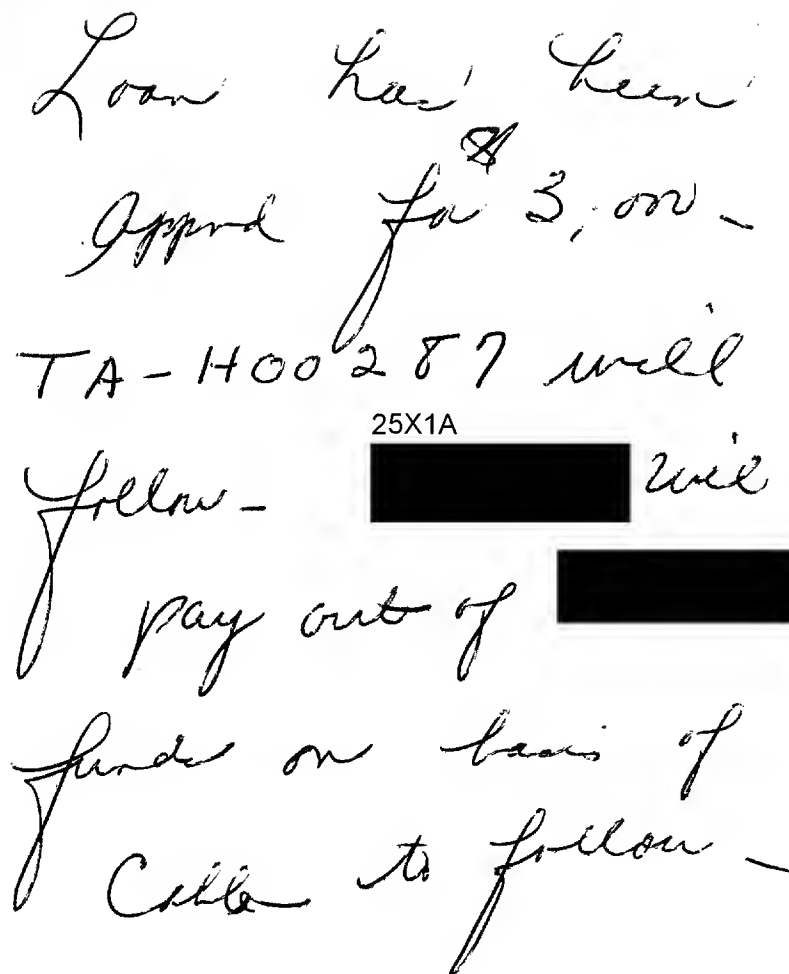 Loan has been
Apprvd for $3,000 -
TA-H00287 will
25X1A
follow - will
pay out of
funds on basis of
Cable to follow -